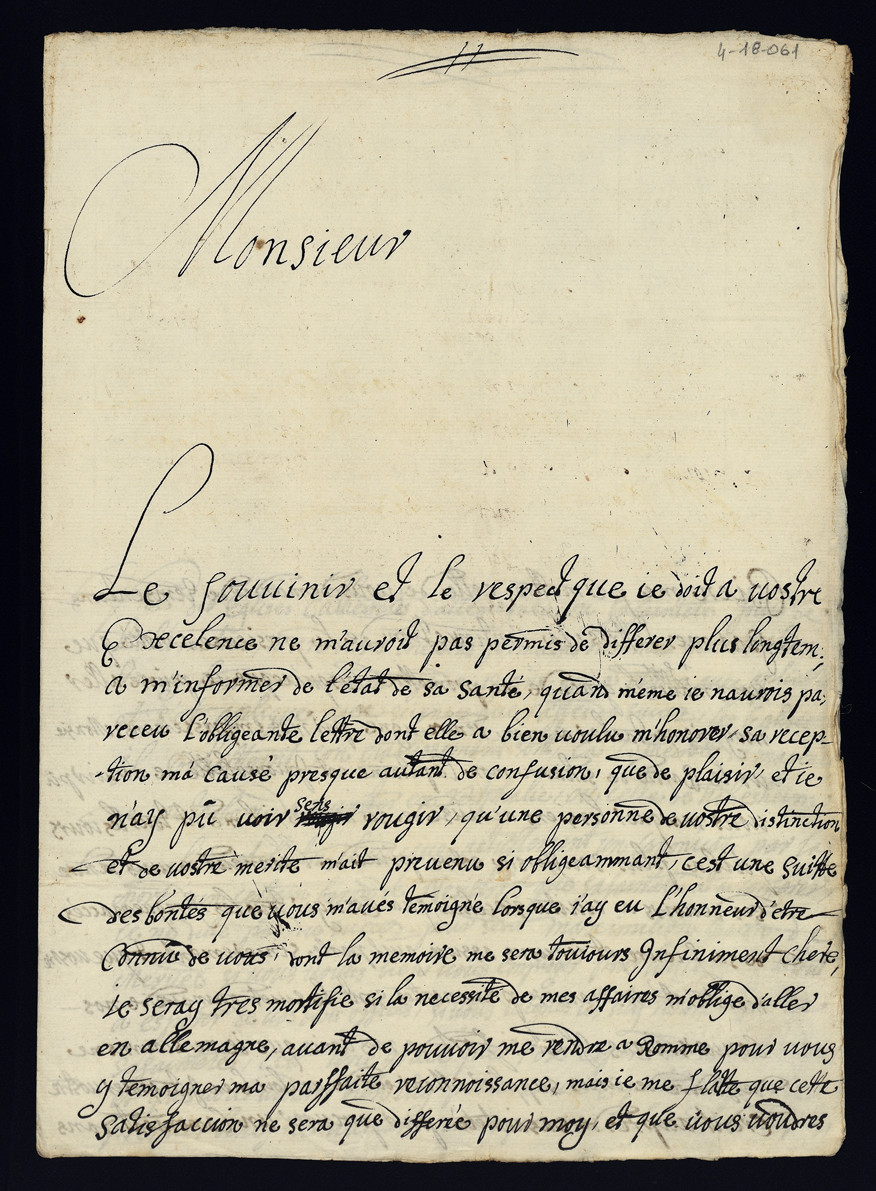 4-18-061
Monsieur
Le souuinir et le respect que ie doit a vostre
Excelence ne m'auroit pas permis de differer plus longtem,
a m'informer de l'état de sa santé, quand méme ie naurois pas
receu l'obligeante lettre dont elle a bien voulu m'honorer, sa recep-
-tion má causé presque autant de confusion, que de plaisir, et ie
n'ay pû voir sens rougir, qu'une personne de vostre distinction
et de vostre merite m'ait prevenu si obligeammant, cest une suitte
des bontés que vous m'avés temoigné lorsque i'ay eu l'honneur d'etre
Connüe de vous, dont la memoire me sera touiours Infiniment Chere,
ie seray tres mortifie si la necessité de mes affaires m'oblige d'aller
en allemagne, avant de pouvoir me rendre a Romme pour vous
y temoigner ma parffaite reconnoissance, mais ie me flatte que cette
satisfaccion ne sera que differée pour moy, et que vous voudres